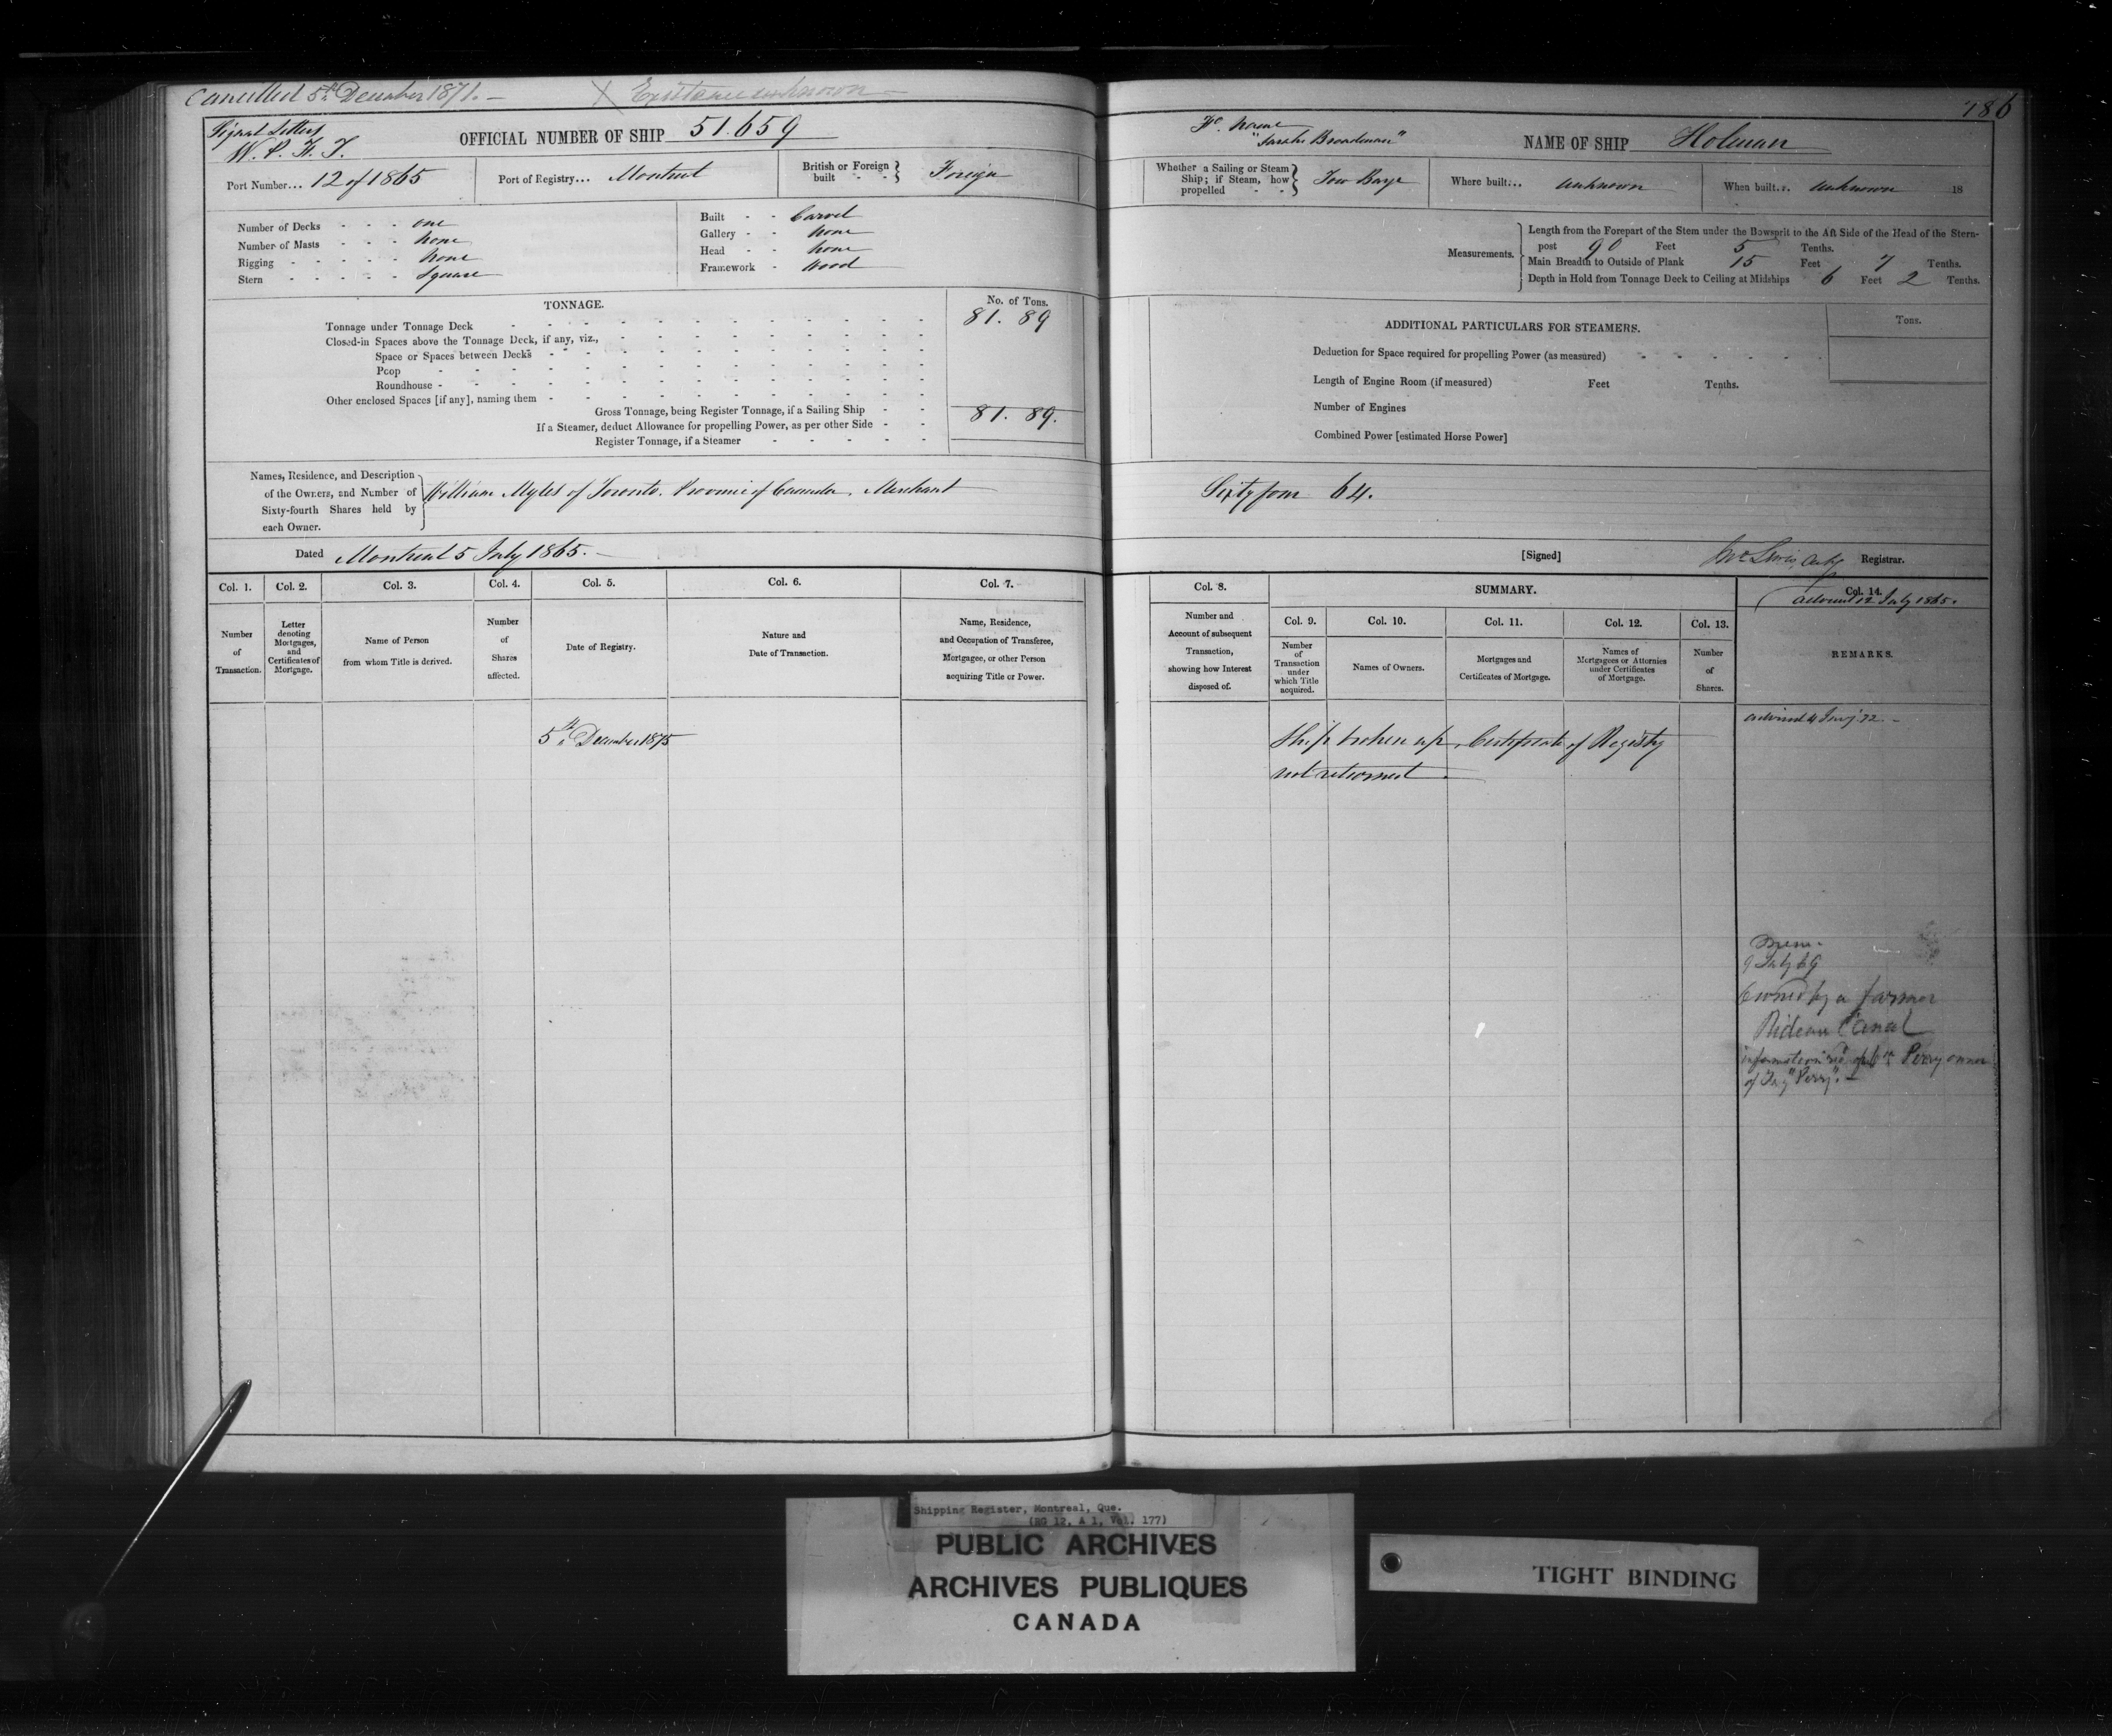 Cancelled 5th December 1871.
X Existence unknown
186
Signal Letters
W. P. F. T.
OFFICIAL NUMBER OF SHIP 51.659
Fo. Name
NAME OF SHIP Holman
Port Number... 12 of 1865
Port of Registry... Montreal
British or Foreign built Foreign
Whether a Sailing or Steam Ship; if Steam, how propelled Tow Barge
Where built... unknown
When built... unknown 18
Number of Decks one
Number of Masts none
Rigging none
Stern Square
Built Carvel
Gallery none
Head none
Framework Wood
Measurements.
Length from the Forepart of the Stem under the Bowsprit to the Aft Side of the Head of the Stern-
post 90 Feet 5 Tenths.
Main Breadth to Outside of Plank 15 Feet 7 Tenths.
Depth in Hold from Tonnage Deck to Ceiling at Midships 6 Feet 2 Tenths.
TONNAGE.
No. of Tons.
Tonnage under Tonnage Deck 81. 89
Closed-in Spaces above the Tonnage Deck, if any, viz.,
Space or Spaces between Decks
Poop
Roundhouse
Other enclosed Spaces [if any], naming them
Gross Tonnage, being Register Tonnage, if a Sailing Ship 81. 89.
If a Steamer, deduct Allowance for propelling Power, as per other Side
Register Tonnage, if a Steamer
ADDITIONAL PARTICULARS FOR STEAMERS.
Tons.
Deduction for Space required for propelling Power (as measured)
Length of Engine Room (if measured) Feet Tenths.
Number of Engines
Combined Power [estimated Horse Power]
Names, Residence, and Description
of the Owners, and Number of
Sixty-fourth Shares held by
each Owner.
William Myles of Toronto. Province of Canada. Merchant
Sixty four 64.
Dated Montreal 5 July 1865.
[Signed] Registrar.
Col. 1.
Number
of
Transaction.
Col. 2.
Letter
denoting
Mortgages,
and
Certificates of
Mortgage.
Col. 3.
Name of Person
from whom Title is derived.
Col. 4.
Number
of
Shares
affected.
Col. 5.
Date of Registry.
Col. 6.
Nature and
Date of Transaction.
Col. 7.
Name, Residence,
and Occupation of Transferee,
Mortgagee, or other Person
acquiring Title or Power.
Col. 8.
Number and
Account of subsequent
Transaction,
showing how Interest
disposed of.
SUMMARY.
Col. 9.
Number
of
Transaction
under
which Title
acquired.
Col. 10.
Names of Owners.
Col. 11.
Mortgages and
Certificates of Mortgage.
Col. 12.
Names of
Mortgagees or Attornies
under Certificates
of Mortgage.
Col. 13.
Number
of
Shares.
Col. 14.
advised 12 July 1865.
REMARKS.
5th December 1875
Ship broken up. Certificate of Registry
not returned
advised 4 Jany 72
Mem.
9 July 69
Owned by a farmer
Rideau Canal
information Perry owner
of Tug "Perry".
Shipping Register, Montreal, Que.
(RG 12, A 1, Vol. 177)
PUBLIC ARCHIVES
ARCHIVES PUBLIQUES
CANADA
TIGHT BINDING